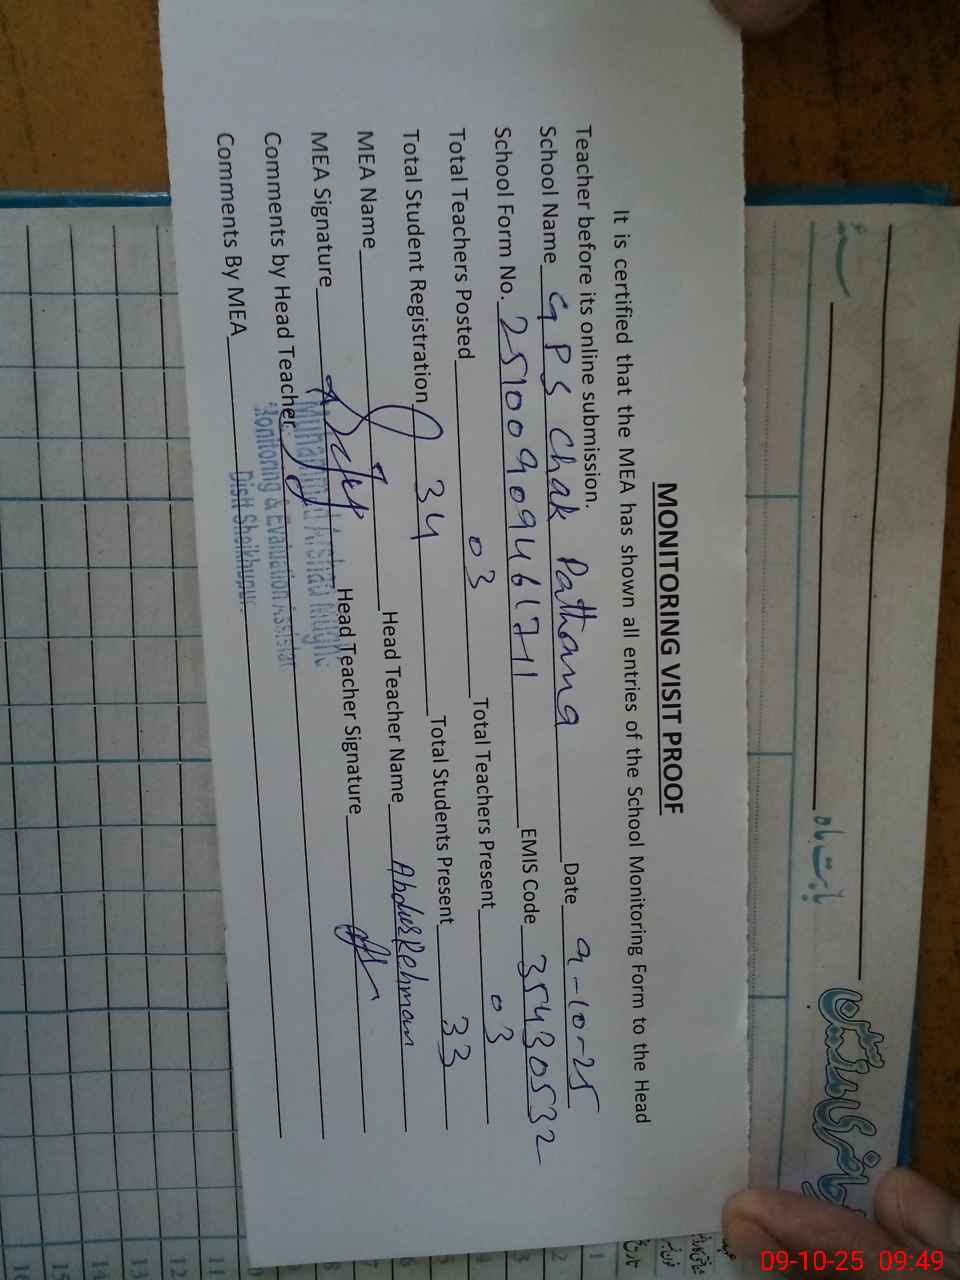 MONITORING VISIT PROOF
It is certified that the MEA has shown all entries of the School Monitoring Form to the Head
Teacher before its online submission.
School Name GPS Chak Pathana Date 9-10-25
School Form No. 25100909461711 EMIS Code 35430532
Total Teachers Posted 03 Total Teachers Present 03
Total Student Registration 34 Total Students Present 33
MEA Name Head Teacher Name Abdus Rehman
MEA Signature Head Teacher Signature
Comments by Head Teacher
Comments By MEA
Muhammad Arshad Mughal
Monitoring & Evaluation Assistant
Distt Sheikhupur
بابت ماہ
1
2
3
4
5
6
7
8
9
11
12
13
14
15
16
09-10-25 09:49